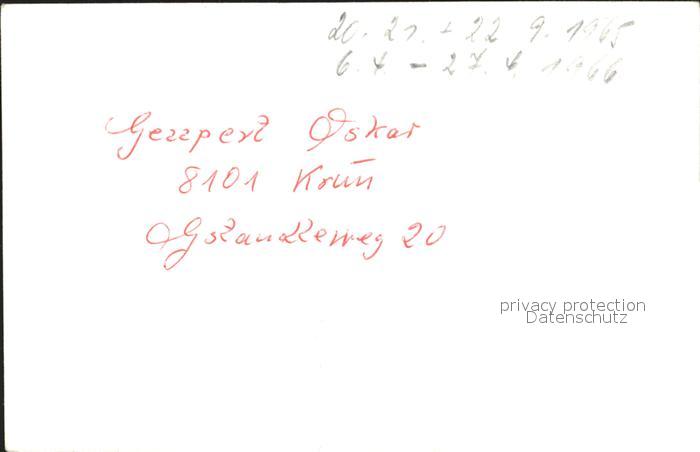 20. 21. + 22 9. 1965
6. 4. - 27. 4. 1966
Oskar
8101 Krün
20
privacy protection
Datenschutz